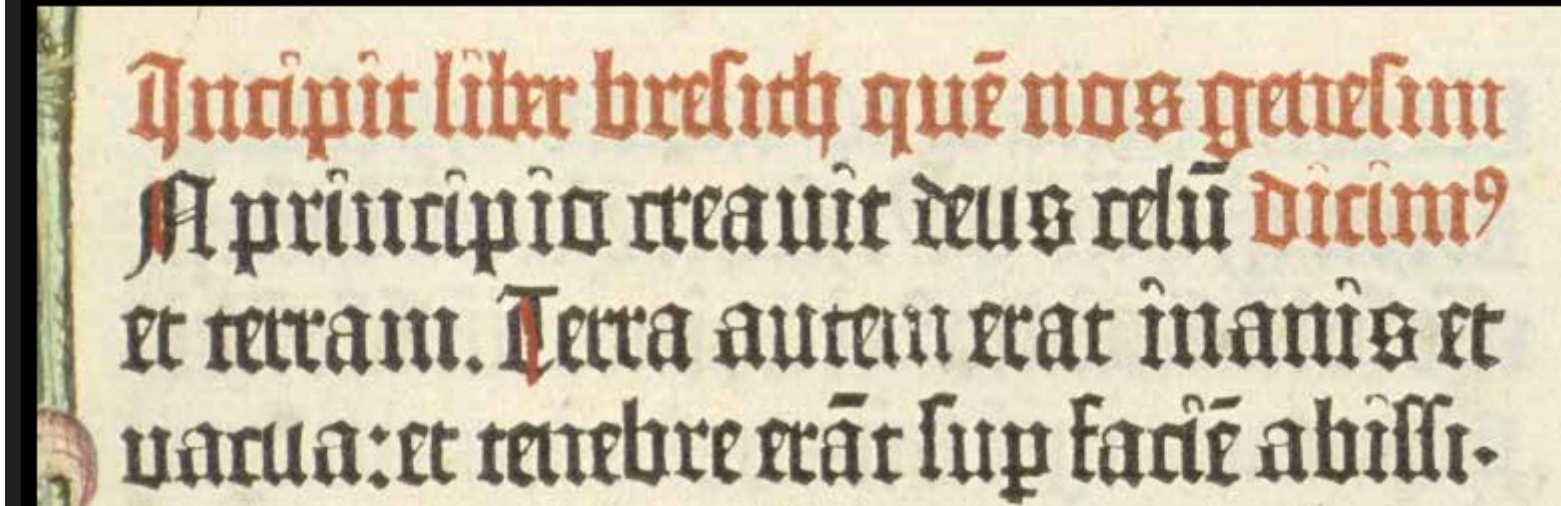 Incipit liber bresith quē nos genesim
N principio creauit deus celū dicimꝰ
et terram. Terra autem erat inanis et
uacua: et tenebre erāt suꝑ faciē abissi.